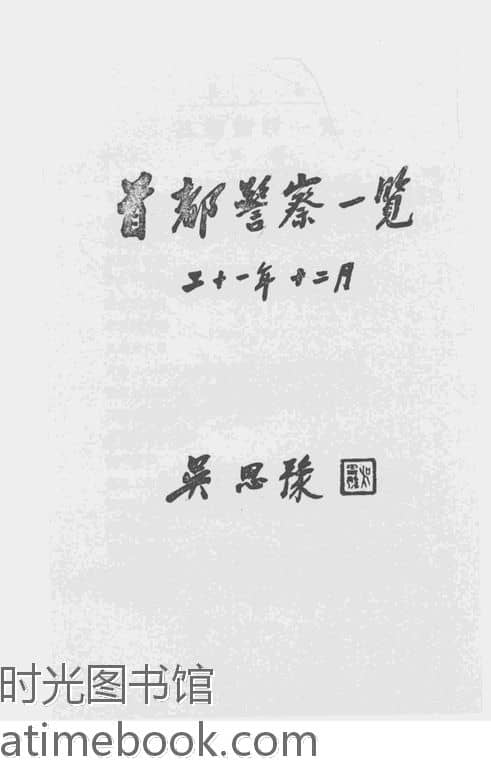 首都警察一覽
二十一年十二月
吳思豫
时光图书馆
atimebook.com